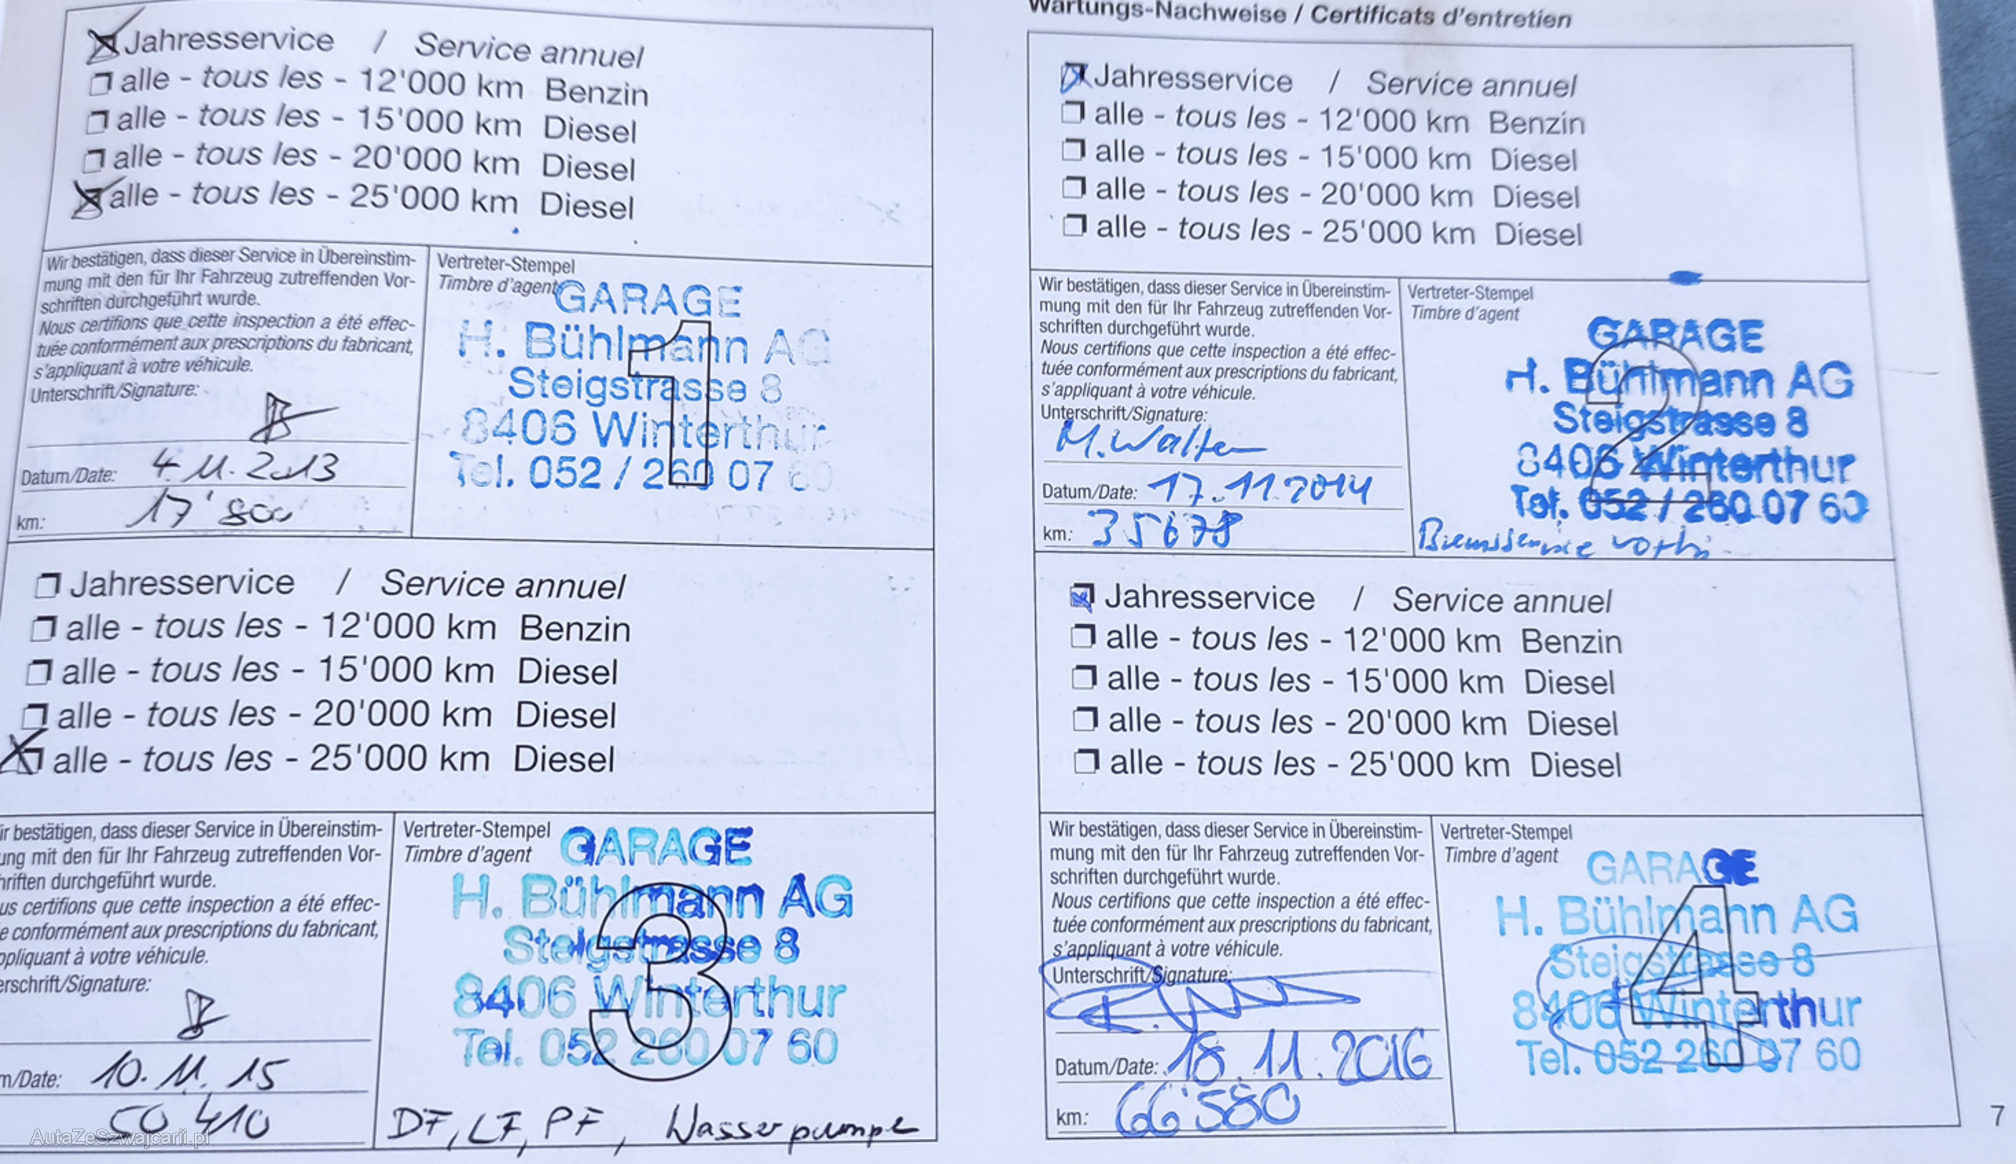 Jahresservice / Service annuel
alle - tous les - 12'000 km Benzin
alle - tous les - 15'000 km Diesel
alle - tous les - 20'000 km Diesel
alle - tous les - 25'000 km Diesel
Wir bestätigen, dass dieser Service in Übereinstim-
mung mit den für Ihr Fahrzeug zutreffenden Vor-
schriften durchgeführt wurde.
Nous certifions que cette inspection a été effec-
tuée conformément aux prescriptions du fabricant,
s'appliquant à votre véhicule.
Unterschrift/Signature:
Datum/Date: 4.11.2013
km.: 17'800
Vertreter-Stempel
Timbre d'agent
1
GARAGE
H. Bühlmann AG
Steigstrasse 8
8406 Winterthur
Tel. 052 / 260 07 60
Jahresservice / Service annuel
alle - tous les - 12'000 km Benzin
alle - tous les - 15'000 km Diesel
alle - tous les - 20'000 km Diesel
alle - tous les - 25'000 km Diesel
ir bestätigen, dass dieser Service in Übereinstim-
ung mit den für Ihr Fahrzeug zutreffenden Vor-
hriften durchgeführt wurde.
us certifions que cette inspection a été effec-
e conformément aux prescriptions du fabricant,
ppliquant à votre véhicule.
erschrift/Signature:
m/Date: 10.11.15
50 410
Vertreter-Stempel
Timbre d'agent
3
GARAGE
H. Bühlmann AG
Steigstrasse 8
8406 Winterthur
Tel. 052 260 07 60
DF, LF, PF, Wasserpumpe
AutaZeSzwajcarii.pl
Wartungs-Nachweise / Certificats d'entretien
Jahresservice / Service annuel
alle - tous les - 12'000 km Benzin
alle - tous les - 15'000 km Diesel
alle - tous les - 20'000 km Diesel
alle - tous les - 25'000 km Diesel
Wir bestätigen, dass dieser Service in Übereinstim-
mung mit den für Ihr Fahrzeug zutreffenden Vor-
schriften durchgeführt wurde.
Nous certifions que cette inspection a été effec-
tuée conformément aux prescriptions du fabricant,
s'appliquant à votre véhicule.
Unterschrift/Signature:
M. Walter
Datum/Date: 17.11.2014
km.: 35678
Vertreter-Stempel
Timbre d'agent
2
GARAGE
H. Bühlmann AG
Steigstrasse 8
8406 Winterthur
Tel. 052 / 260 07 60
Bremsservice
Jahresservice / Service annuel
alle - tous les - 12'000 km Benzin
alle - tous les - 15'000 km Diesel
alle - tous les - 20'000 km Diesel
alle - tous les - 25'000 km Diesel
Wir bestätigen, dass dieser Service in Übereinstim-
mung mit den für Ihr Fahrzeug zutreffenden Vor-
schriften durchgeführt wurde.
Nous certifions que cette inspection a été effec-
tuée conformément aux prescriptions du fabricant,
s'appliquant à votre véhicule.
Unterschrift/Signature:
Datum/Date: 18.11.2016
km.: 66'580
Vertreter-Stempel
Timbre d'agent
4
GARAGE
H. Bühlmann AG
Steigstrasse 8
8406 Winterthur
Tel. 052 260 07 60
7